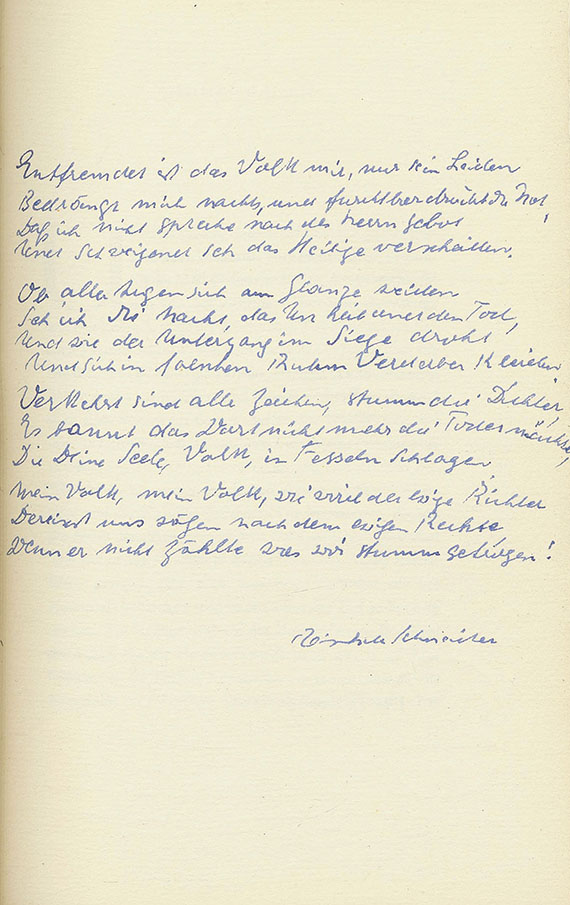 Entfremdet ist das Volk mir, nur sein Leiden
Bedrängt mich nachts, und furchtbar drückt die Not,
Daß ich nicht spreche nach des Herrn Gebot
Und schweigend seh das Heilige verscheiden.
Ob alle Augen sich am Glanze weiden
Seh ich die Nacht, das Unheil und den Tod,
Und wie der Untergang im Siege droht
Und sich in falschen Ruhm Verderber kleiden
Verkehrt sind alle Zeichen, stumm die Dichter,
Es bannt das Wort nicht mehr die Todesmächte,
Die Deine Seele, Volk, in Fesseln schlagen
Mein Volk, mein Volk, wie wird der ewige Richter
Dereinst uns wägen nach dem ewigen Rechte
Wenn er nicht zählte was wir stumm getragen!
Reinhold Schneider